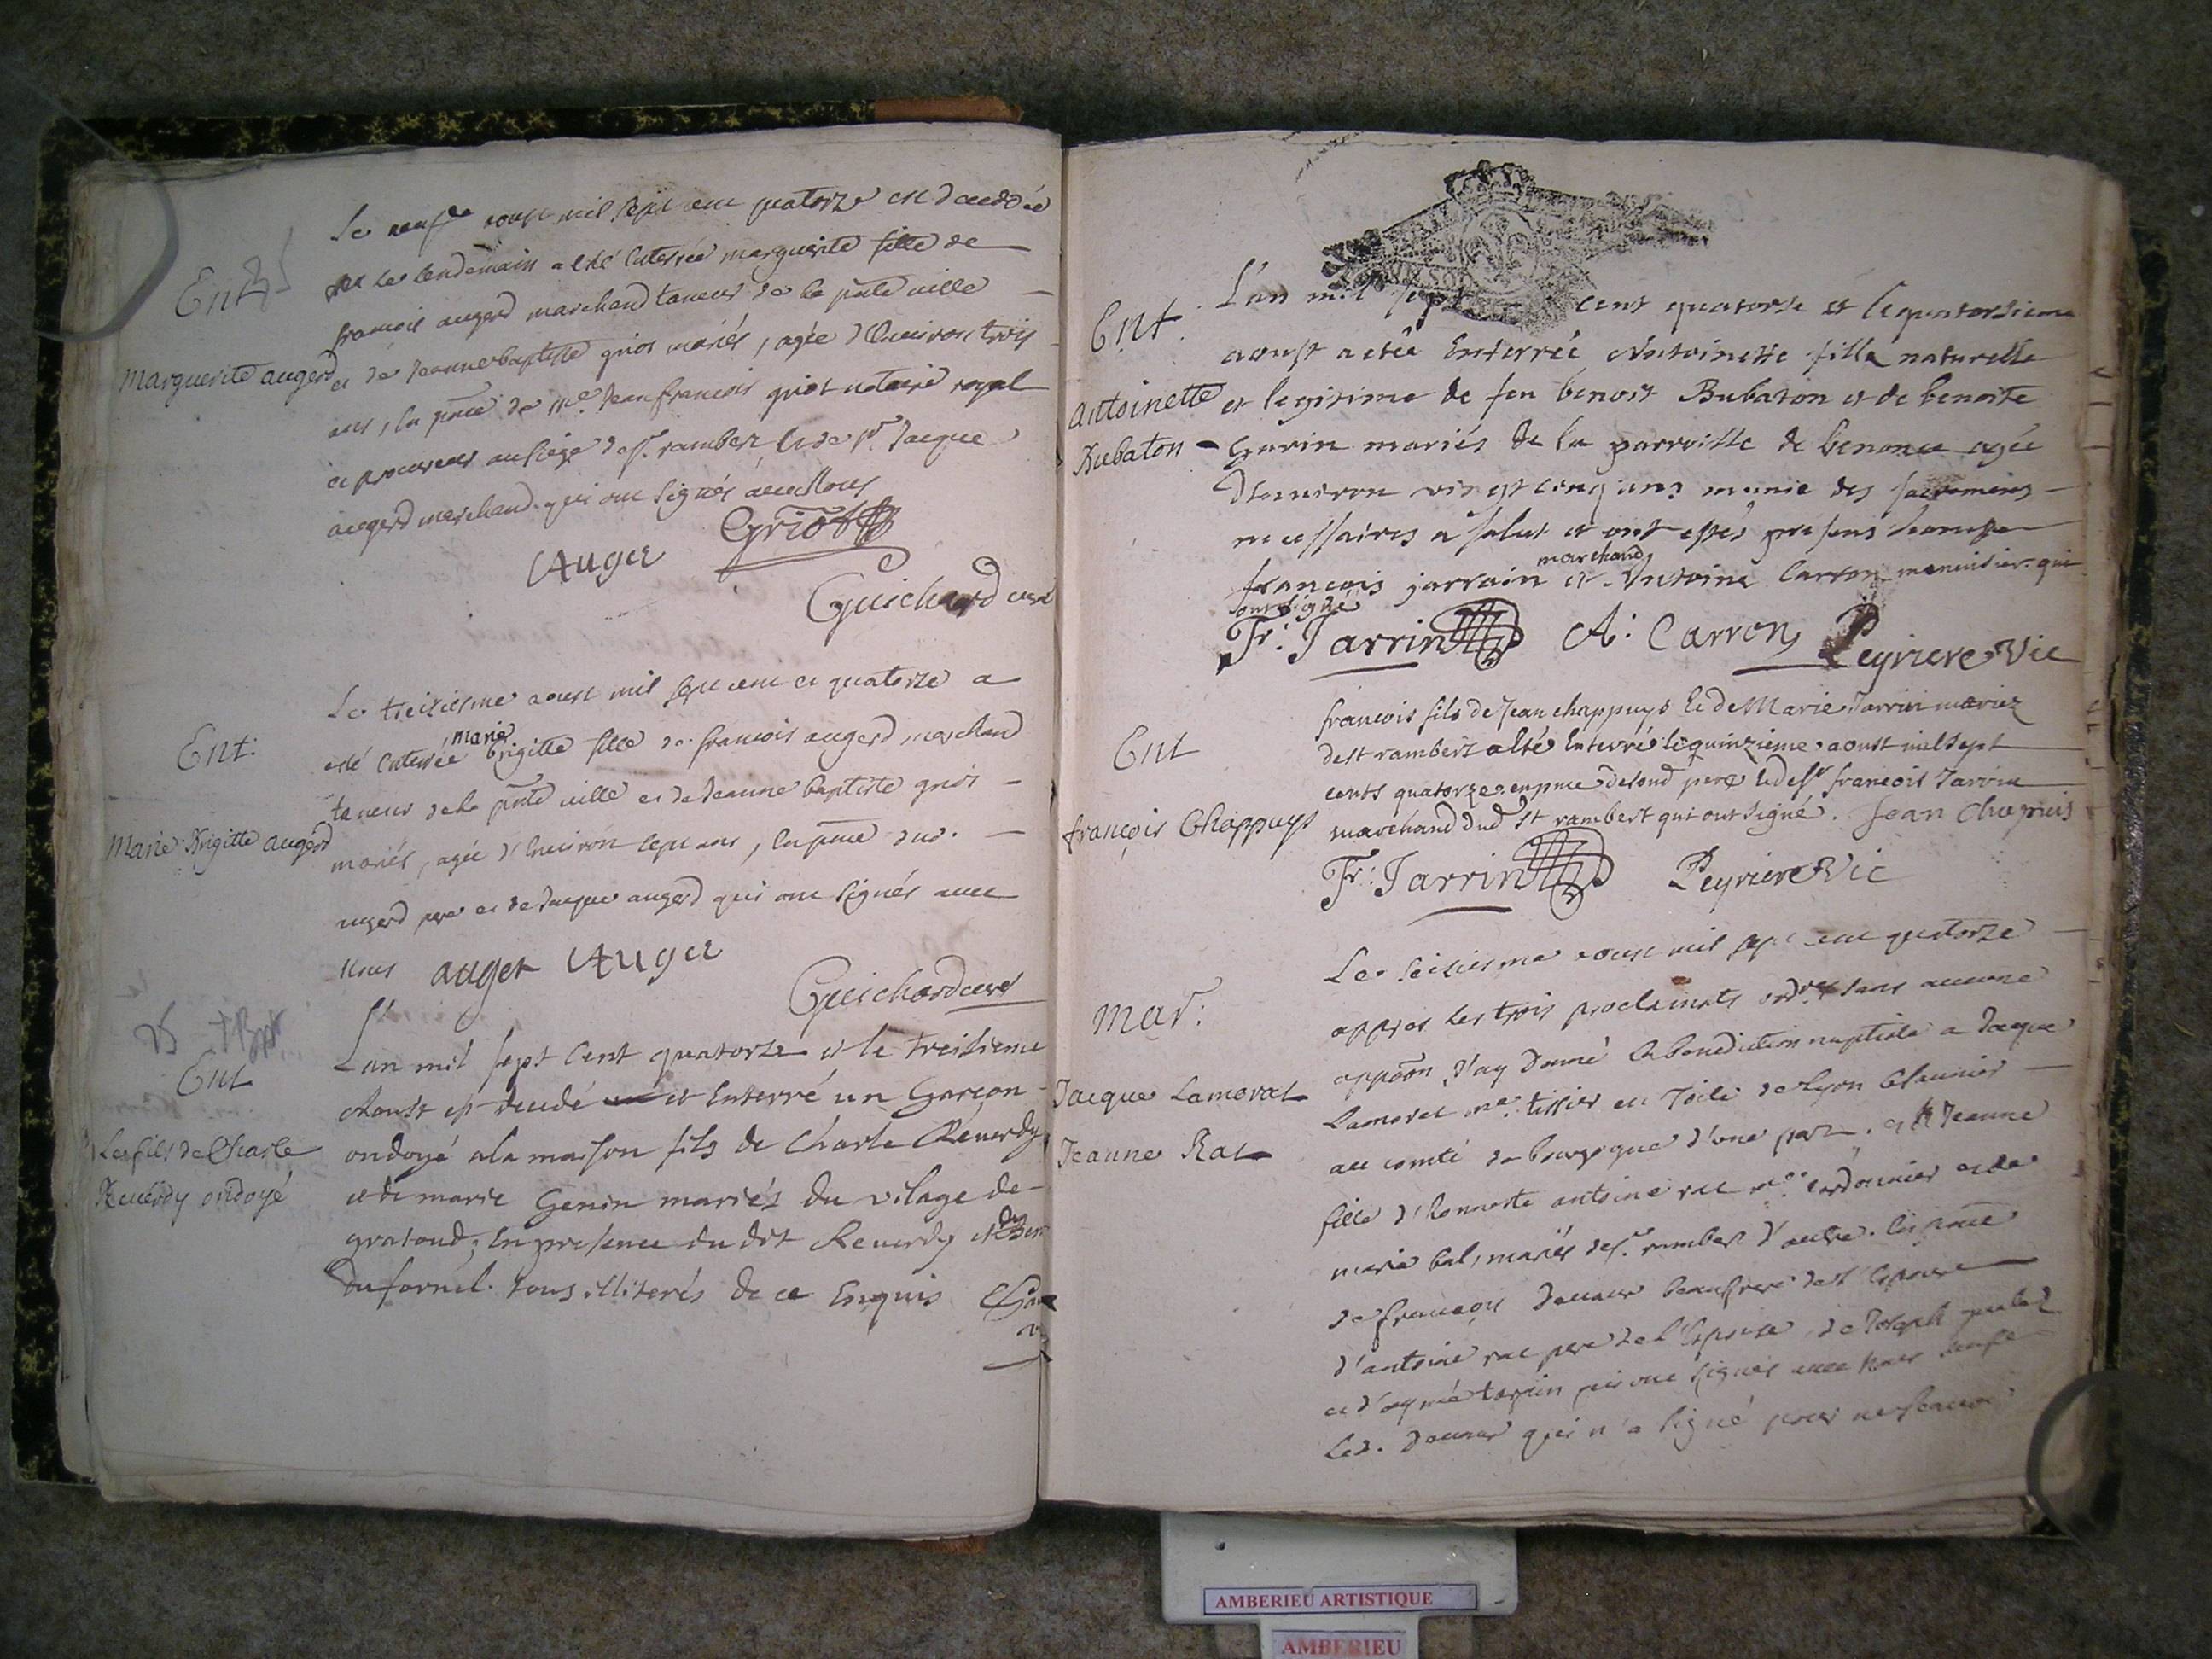 Ent
Marguerite augerd
Le neufe aoust mil sept cent quatorze est decedée
et le lendemain a esté enterrée marguerite fille de
francois augerd marchand taneur de la pnte ville
et de Jeanne baptiste griot mariés, agée d'environ trois
ans, en pnce de me Jean francois griot notaire royal
et procureur au siege de st rambert et de sr Jacque
augerd marchand qui ont signés avec Nous
Auger Griot
Guichard curé
Ent:
Marie Brigitte augerd
Le treiziesme aoust mil sept cent et quatorze a
marie
esté enterrée brigitte fille de francois augerd marchand
taneur de la pnte ville et de Jeanne baptiste griot
mariés, agée d'environ sept ans, en pnce dud.
augerd pere et de Jacque augerd qui ont signés avec
Nous auger Auger
Guichard curé
Ent
Le fils de Charle
Reverdy ondoyé
L'an mil sept cent quatorze et le treizieme
Aoust est decedé et enterré un Garcon
ondoyé a la maison fils de Charle Reverdy
et de marie Genin mariés du vilage de
gratoud, en presence du dit Reverdy et
dufornel. tous illiterés de ce Enquis
Ent.
Antoinette
Bubaton
L'an mil sept cent quatorse et le quatorsieme
aoust a etée Enterrée Antoinette fille naturelle
et legitime de feu benoit Bubaton et de benoite
Garin mariés de la parroisse de benonce agée
d'environ vingt cinq ans munie des sacremens
necessaires a salut et ont estés presens
marchand
francois jarrain et Antoine Carron menuisier qui
ont signé
Fr: Jarrin A: Carron Peyriere Vic
Ent
françois Chappuys
francois fils de Jean chappuys et de Marie Jarrin mariez
de st rambert a esté enterré le quinzieme aoust mil sept
cents quatorze en pnce de soud pere et de sr francois Jarrin
marchand dud st rambert qui ont signé. Jean Chapuis
Fr: Jarrin Peyriere Vic
Mar:
Jacque Lamoral
Jeanne Rat
Le seiziesme aoust mil sept cent quatorze
appres les trois proclamats ordres sans aucune
appoõn, J'ay donné la benediction nuptiale a Jacque
Lamoral me tissier en Toile de
au comté de bourgogne d'une part. et a Jeanne
fille d'honneste antoine rat me cordonnier et de
marie bal, mariés de st rambert d'autre. en pnce
de francois beaufrere de l'Epouse
d'antoine rat pere de l'Epouse, de Joseph
et d'aymé tarpin qui ont signés avec nous
Led. qui n'a signé pour ne scavoir
AMBERIEU ARTISTIQUE
AMBERIEU